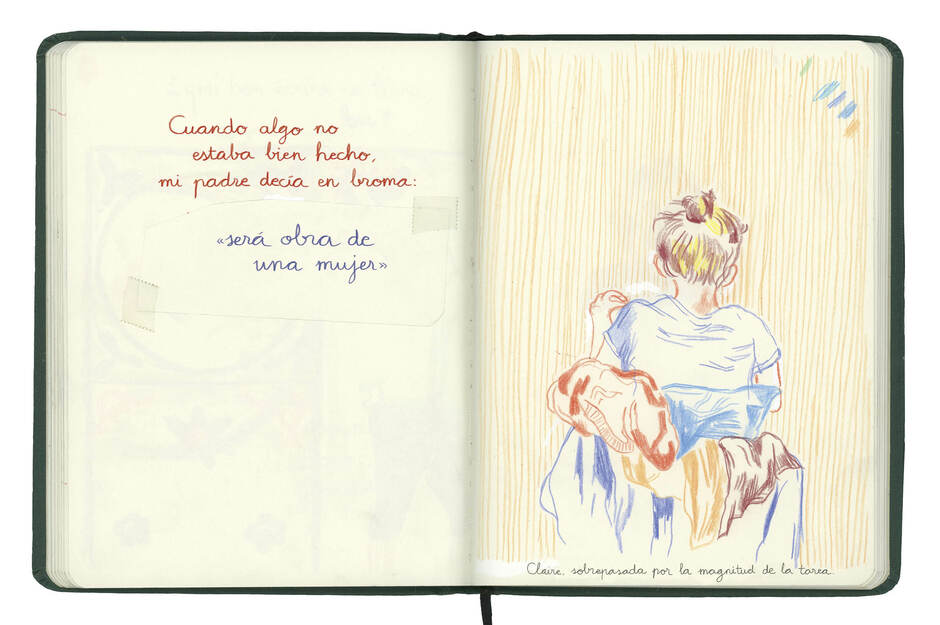 Cuando algo no
estaba bien hecho,
mi padre decía en broma:
«será obra de
una mujer»
Claire, sobrepasada por la magnitud de la tarea.